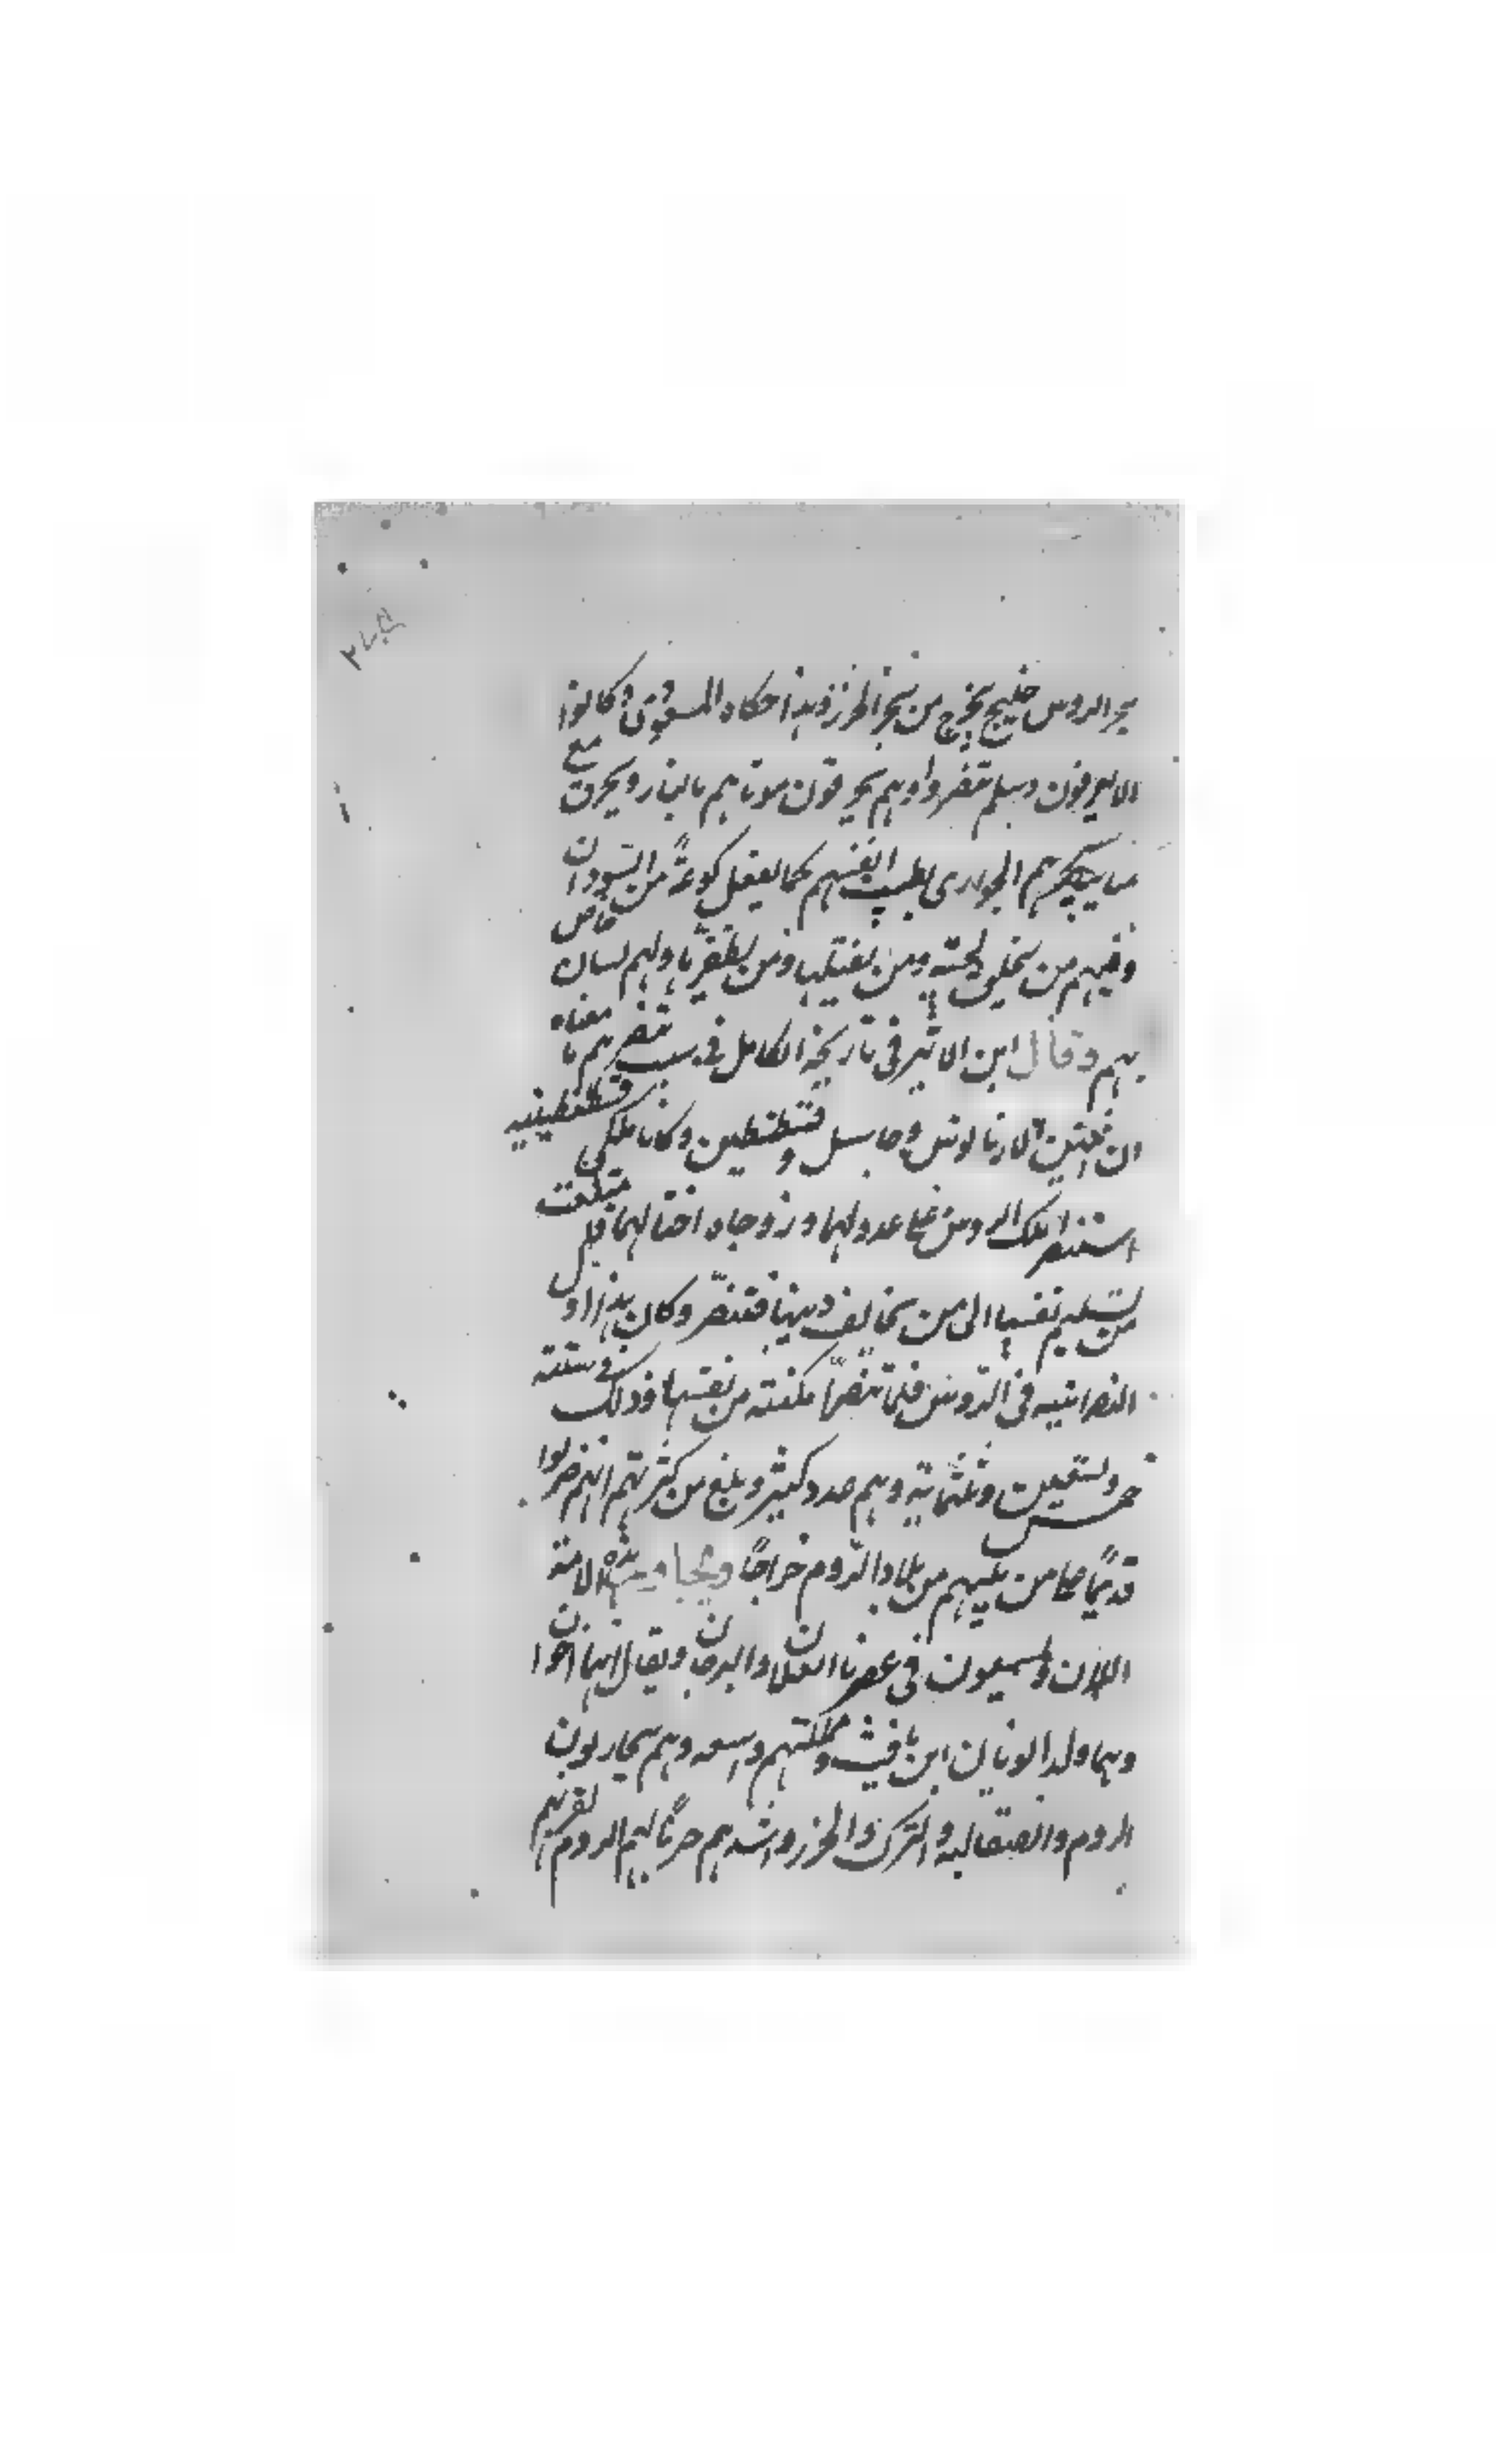 بحر الروس خليج يخرج من بحر الخزر فهذا حكاه المسعودى وكانوا
لا يعرفون وسلم تنصروا وهم يحرقون موتاهم بالنار ويحرق مع
الجوارى بطيب انفسهم كما يفعل من السودان
وفيهم من يحلق لحيته ومن يفتلها ومن يظفرها ولهم لسان خاص
بهم وقال ابن الاثير فى تاريخه الكامل فى سبب تنصرهم ما معناه
ان وقسطنطين وكانا ملكى قسطنطينيه
استنصرا ملك الروس على عدو لهما وزوجاه اختا لهما فلم
من تسليم نفسها الى من يخالف دينها فتنصّر وكان هذا اول
النصرانيه فى الروس فلما تنصّر مكنته من نفسها وذلك فى سنته
خمس وسبعين وثلثماية وهم عدد كثير وبلغ من كثرتهم انهم ضربوا
قديمًا على من يليهم من بلاد الرّوم خراجًا هذه الامة
اللان ويسمون فى عصرنا العلان والبرجان ويقال انهما اخوان
وهما ولدا يونان ابن يافث ومملكتهم واسعه وهم يحاربون
الروم والصقالبه والترك والخزر واشدهم حربًا لهم الروم لقربهم